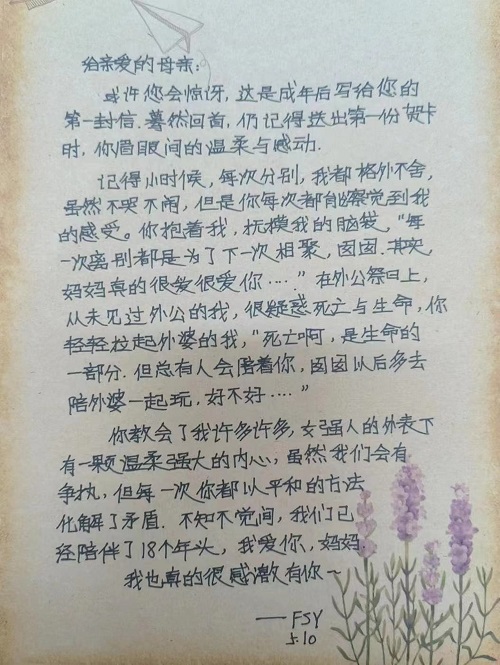 给亲爱的母亲：
或许您会惊讶，这是成年后写给您的
第一封信．蓦然回首，仍记得送出第一份贺卡
时，你眉眼间的温柔与感动．
记得小时候，每次分别，我都格外不舍，
虽然不哭不闹，但是你每次都能察觉到我
的感受。你抱着我，抚摸我的脑袋，“每
一次离别都是为了下一次相聚，囡囡．其实
妈妈真的很爱很爱你……”在外公祭日上，
从未见过外公的我，很疑惑死亡与生命，你
轻轻拉起外婆的我，“死亡啊，是生命的
一部分．但总有人会陪着你，囡囡以后多去
陪外婆一起玩，好不好……”
你教会了我许多许多，女强人的外表下
有一颗温柔强大的内心，虽然我们会有
争执，但每一次你都以平和的方法
化解了矛盾．不知不觉间，我们已
经陪伴了18个年头，我爱你，妈妈．
我也真的很感激有你～
——FSY
5.10